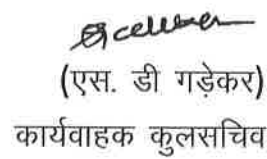 (एस. डी गड़ेकर)
कार्यवाहक कुलसचिव